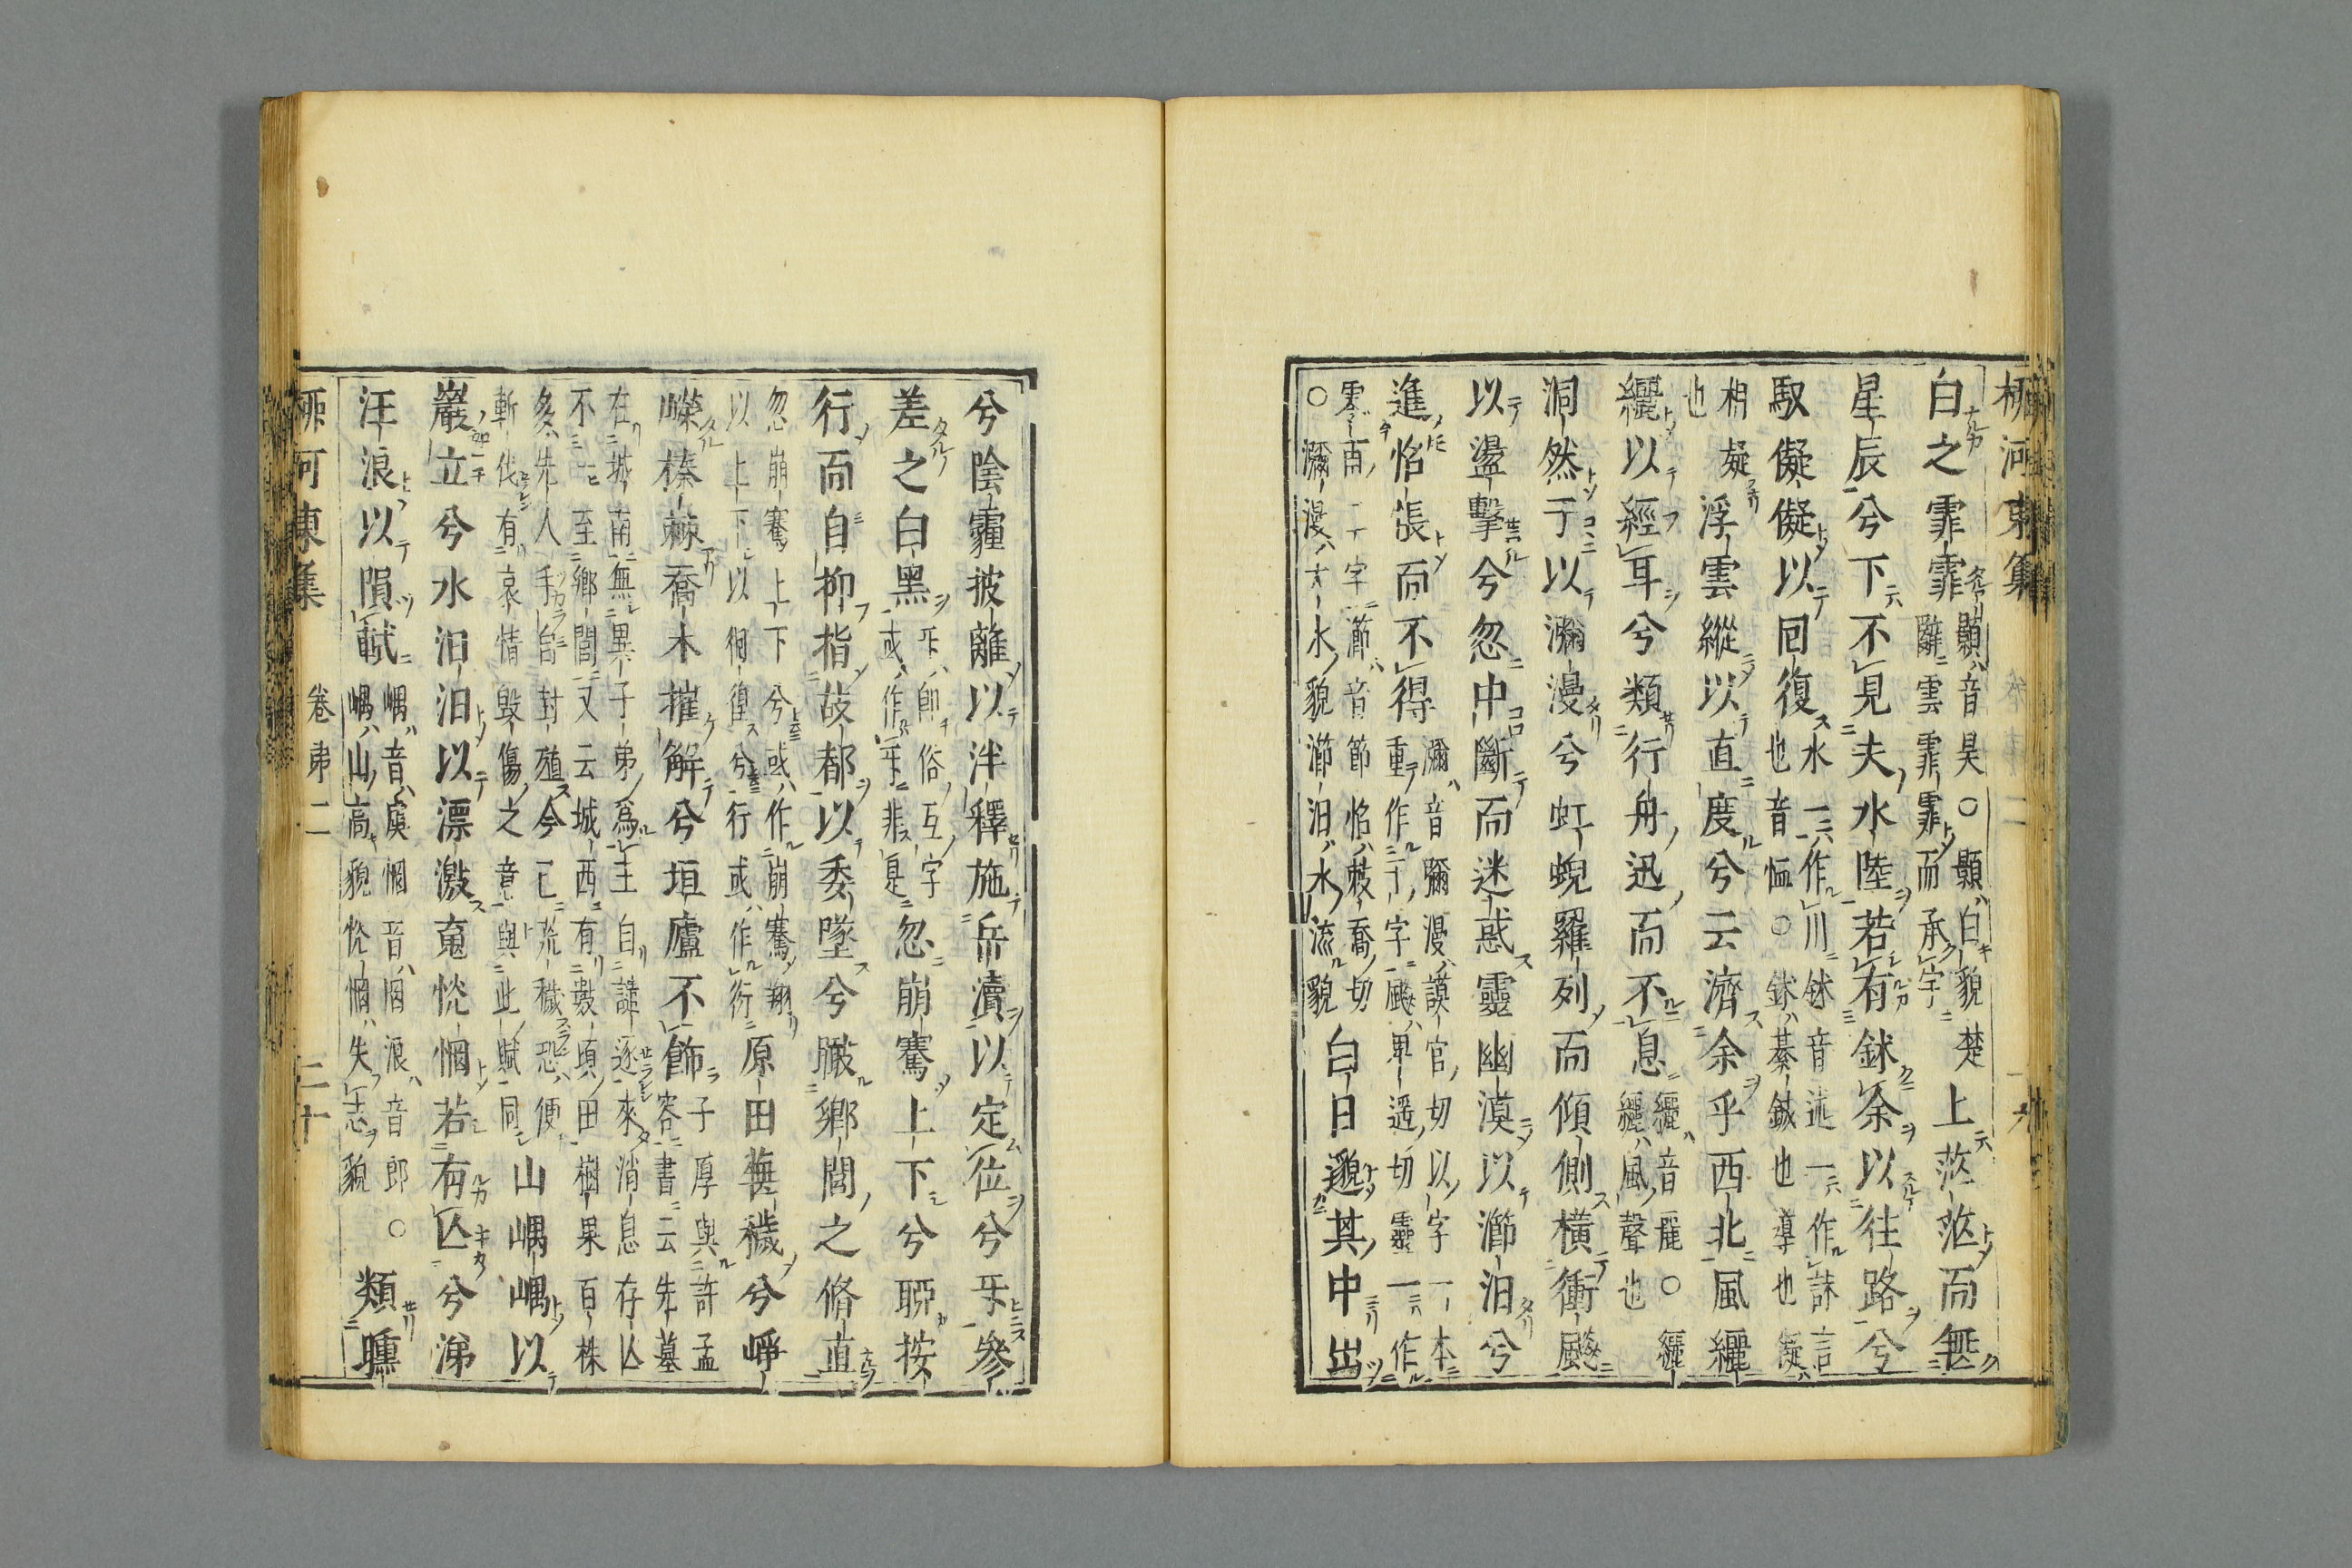 柳河東集
白之霏霏
顥音昊○顥白貌楚
辭雲霏霏而承宇
上茫茫而無
星辰兮下不見夫水陸若有鉥余以往路兮
馭儗儗以回復
水一作川鉥音述一作訹言
也音恤○鉥綦鍼也導也儗
相疑
也
浮雲縱以直度兮云濟余乎西北風纚
纚以經耳兮類行舟迅而不息
纚音麗○纚
纚風聲也
洞然于以瀰漫兮虹蜺羅列而傾側橫衝飇
以盪擊兮忽中斷而迷惑靈幽漠以瀄汩兮
進怊悵而不得
瀰音彌漫謨官切以字一本
重作二字飇卑遥切靈一作
零二字瀄音節怊敕喬切
○瀰漫大水貌瀄汩水流貌
白日邈其中出
兮陰霾披離以泮釋施岳瀆以定位兮乐參
差之白黑
乐即俗互字
或作牙非是
忽崩騫上下兮聊按
行而自抑指故都以委墜兮瞰鄉閭之脩直
忽崩騫上下兮或作崩騫翔
以上下以徊徨兮行或作衍
原田蕪穢兮崢
嶸榛棘喬木摧解兮垣廬不飾
子厚與許孟
容書云先墓
在城南無異子弟為主自譴逐來消息存亡
不一至鄉閭又云城西有數頃田樹果百株
多先人手自封殖今已荒穢恐便
斬伐有哀情毀傷之意與此賦同
山嵎嵎以
巖立兮水汩汩以漂激䰟恍惘若有亾兮涕
汪浪以隕軾
嵎音虞惘音罔浪音郎○
嵎山高貌恍惘失志貌
類曛
柳河東集
卷弟二
二十